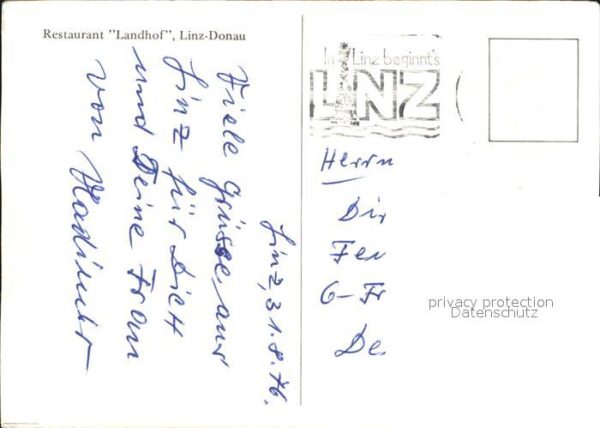 Restaurant "Landhof", Linz-Donau
In Linz beginnt's
LINZ
Linz, 31.8.76.
Viele Grüsse, aus
Linz für Dich
und Deine Frau
von
Herrn
Dir
Fer
6-Fr
De
privacy protection
Datenschutz